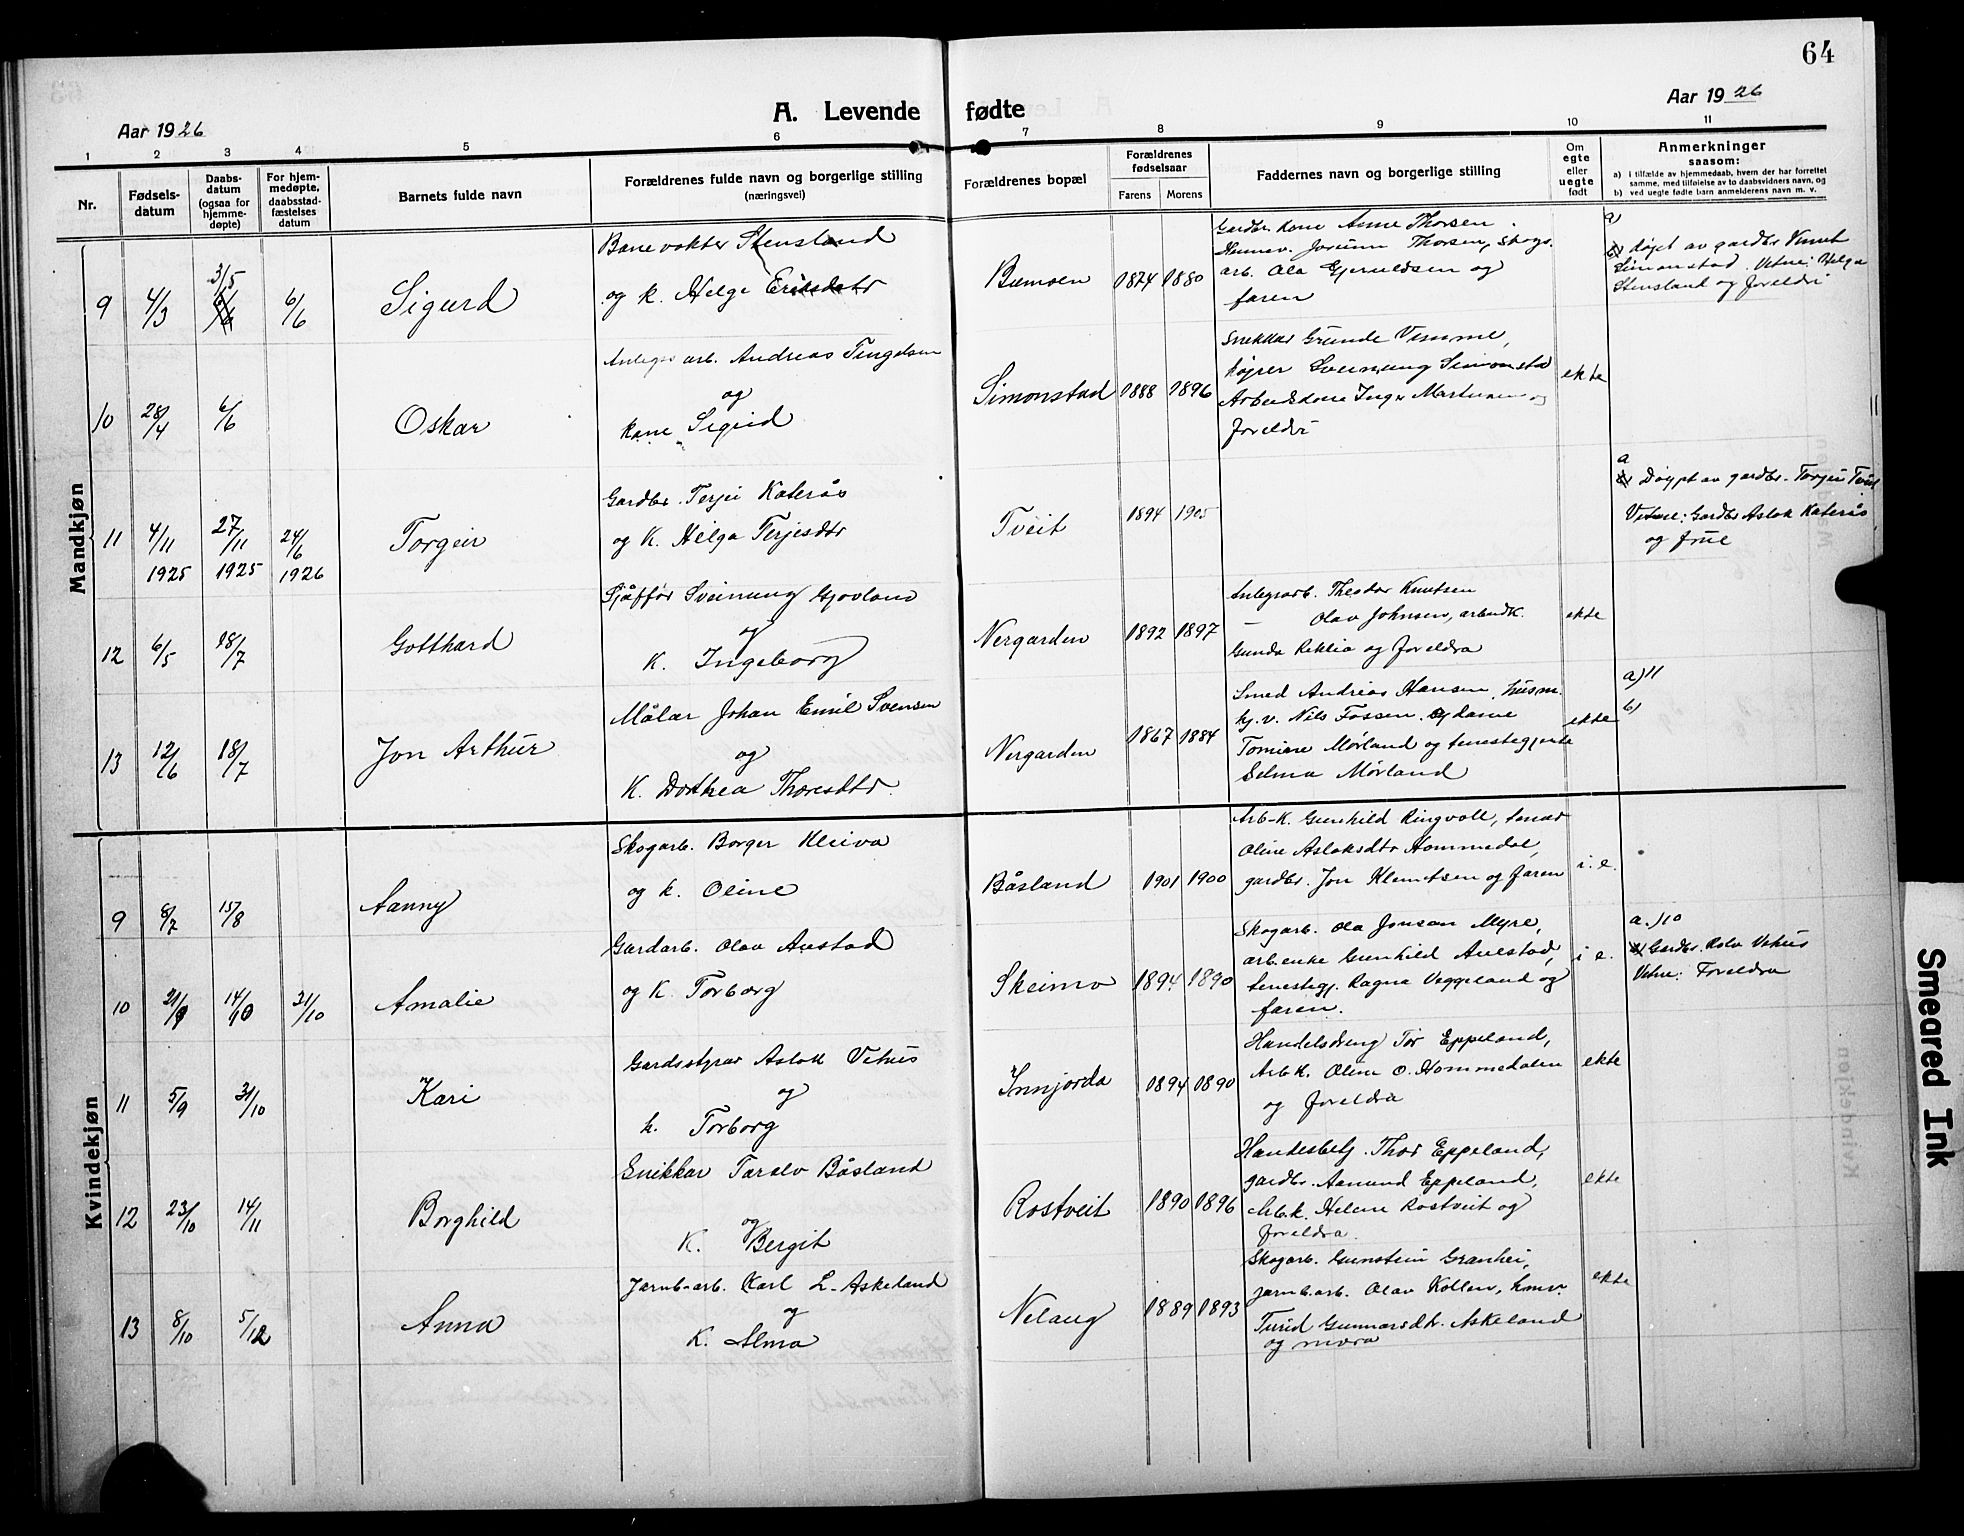 64
A. Levende fødte
Aar 1926
Aar 1926
1 2 3 4 5 6 7 8 9 10 11
Nr.
Fødsels-
datum
Daabs-
datum
(ogsaa for
hjemme-
døpte)
For hjem-
medøpte,
daabsstad-
fæstelses
datum
Barnets fulde navn
Forældrenes fulde navn og borgerlige stilling
(næringsvei)
Forældrenes bopæl
Forældrenes
fødselsaar
Farens Morens
Faddernes navn og borgerlige stilling
Om
egte
eller
uegte
født
Anmerkninger
saasom:
a) i tilfælde av hjemmedaab, hvem der har forrettet
samme, med tilføielse av to daabsvidners navn, og
b) ved uegte fødte barn anmelderens navn m. v.
Mandkjøn
9 4/3 3/5 6/6 6/6 Sigurd
Banevokter Stensland
og k. Helge Eriksdatr
Bumoen 1874 1880
Gardbr. kone Anne Thorsen.
Husmor. Jorunn Thorsen, skogs.
arb. Ola Gjeruldsen og
faren
a)
b) døpt av gardbr Vimet
Simonstad. Vitne: Helga
Stensland og foreldri
10 28/4 6/6 Oskar
Anlegs arb. Andreas Tengelsen
og
kone Sigrid
Simonstad 1888 1896
Snekkar Grunde Vimme,
køjrer Sveinung Simonstad
Arbeidskone Inger Martinsen og
foreldri
ekte
11 4/11 1925 27/11 1925 24/6 1926 Torgeir
Gardbr. Terjei Katerås
og K. Helga Terjesdtr
Tveit 1894 1905
a
Døypt av gardbr. Torjei Tveit
Vitne: Gardbr Aslak Katerås
og frue
12 6/5 18/7 Gotthard
Sjåffør Sveinung Gjovland
og
K. Ingeborg
Nergarden 1892 1897
Anlegsarb. Theodor Knutsen
— Olav Johnsen, arbeidk.
Gunda Reklia og foreldra
ekte
13 12/6 18/7 Jon Arthur
Målar Johan Emil Svensen
og
K. Dorthea Thoresdtr.
Nergarden 1867 1884
Smed Andreas Hansen, husm.
kj. v. Nils Fossen. Sydame
Tomine Mørland og tenestegjente
Selma Mørland
ekte
a) 11
b)
Kvindekjøn
9 8/7 15/8 Aanny
Skogarb. Borger Kleiva
og k. Oline
Båsland 1901 1900
Arb-K. Gunhild Ringvoll,
Oline Aslaksdtr Hommedal,
gardbr. Jon Klemetsen og faren
i. e.
10 21/9 14/10 31/10 Amalie
Gardarb. Olav Austad
og K. Torborg
Skeimo 1894 1890
Skogarb. Ola Jonson Myre,
arb.enke Gunhild Aulestad,
tenestegj. Ragna Veggeland og
faren.
i e.
a.) 10
Gardbr. Rolv Vehus
Vitne: Foreldra
11 5/9 31/10 Kari
Gardsstyrar Aslak Vehus
og
k. Torborg
Innjorda 1894 1890
Handelsdreng Tor Eppeland,
Arb K. Oline O. Hommedalen
og foreldra
ekte
12 23/10 14/11 Borghild
Snikkar Tarelv Båsland
og
K. Bergit
Rostveit 1890 1896
Handesbetj. Thor Eppeland,
gardbr. Aanund Eppeland,
Arb.k. Helene Rostveit og
foreldra.
ekte
13 8/10 5/12 Anna
Jarnb-arb. Karl L. Askeland
og
K. Alma
Nelaug 1889 1893
Skogarb. Gunstein Granhei,
jarnb.arb. Olav Kollen, hmv.
Turid Gunnarsdtr. Askeland
og mora
ekte
Smeared Ink